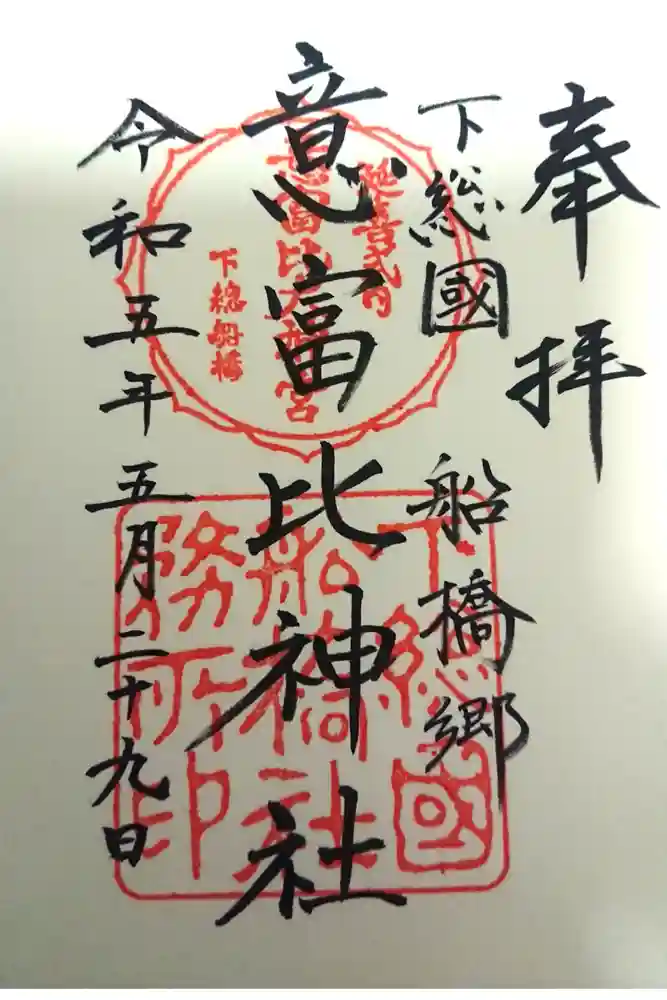 奉拝
下総國 船橋郷
意富比神社
令和五年五月二十九日
延喜式内
意富比大神宮
下總船橋
下総国
船橋社
務所印